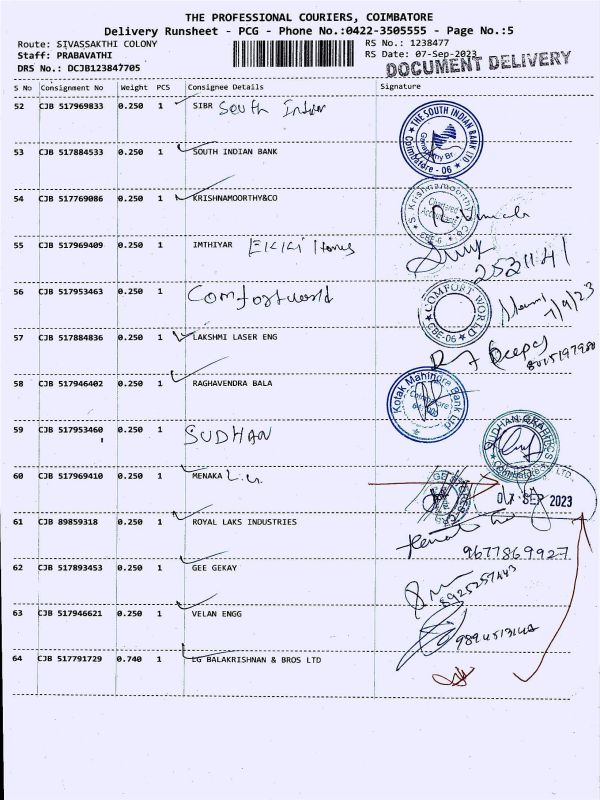 THE PROFESSIONAL COURIERS, COIMBATORE
Delivery Runsheet - PCG - Phone No.:0422-3505555 - Page No.:5
Route: SIVASSAKTHI COLONY
RS No.: 1238477
Staff: PRABAVATHI
RS Date: 07-Sep-2023
DRS No.: DCJB123847705
DOCUMENT DELIVERY
S No Consignment No Weight PCS Consignee Details Signature
52 CJB 517969833 0.250 1 SIBR South Indian
THE SOUTH INDIAN BANK LTD
Coimbatore - 06
53 CJB 517884533 0.250 1 SOUTH INDIAN BANK
54 CJB 517769086 0.250 1 KRISHNAMOORTHY&CO
S. Krishnamoorthy & Co
Chartered Accountants
CBE-6
55 CJB 517969409 0.250 1 IMTHIYAR EKKI Homes
2531141
56 CJB 517953463 0.250 1 Comfortworld
COMFORT WORLD
CBE-06
7/9/23
57 CJB 517884836 0.250 1 LAKSHMI LASER ENG
58 CJB 517946402 0.250 1 RAGHAVENDRA BALA
Kotak Mahindra Bank Ltd
Coimbatore
59 CJB 517953460 0.250 1 SUDHAN
SUDHAN GRAPHICS
60 CJB 517969410 0.250 1 MENAKA
LTD.
07 SEP 2023
61 CJB 89859318 0.250 1 ROYAL LAKS INDUSTRIES
9677869927
62 CJB 517893453 0.250 1 GEE GEKAY
63 CJB 517946621 0.250 1 VELAN ENGG
64 CJB 517791729 0.740 1 LG BALAKRISHNAN & BROS LTD